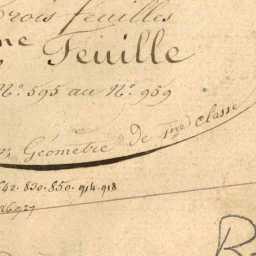 trois feuilles
me Feuille
N.º 595 au N.º 959
Géomètre de 1re Classe
642. 830. 850. 914. 918